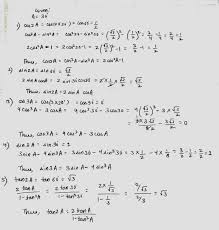 Given:
A = 30°
1) cos2A = cos(2×30°) = cos60 = 1/2
cos²A - sin²A = cos²30 - sin²30 = (√3/2)² - (1/2)² = 3/4 - 1/4 = 2/4 = 1/2
2cos²A - 1 = 2cos²30 - 1 = 2(√3/2)² - 1 = 3/2 - 1 = 1/2
Thus, cos2A = cos²A - sin²A = 2cos²A - 1
2) sin2A = sin60 = √3/2
2 sinA cosA = 2 sin30 cos30 = 2 × 1/2 × √3/2 = √3/2
Thus, sin2A = 2 sinA cosA
3) cos3A =
4cos³A - 3cosA = 4cos³30 - 3cos30 =
Thus, cos3A = 4cos³A - 3cosA
4)
3sinA - 4sin³A = 3sin30 - 4sin³30 = 3 × 1/2 -
Thus, sin3A = 3sinA - 4sin³A
tan2A = tan60 = √3
2tanA / 1 - tan²A =
Thus, tan2A = 2tanA / 1 - tan²A